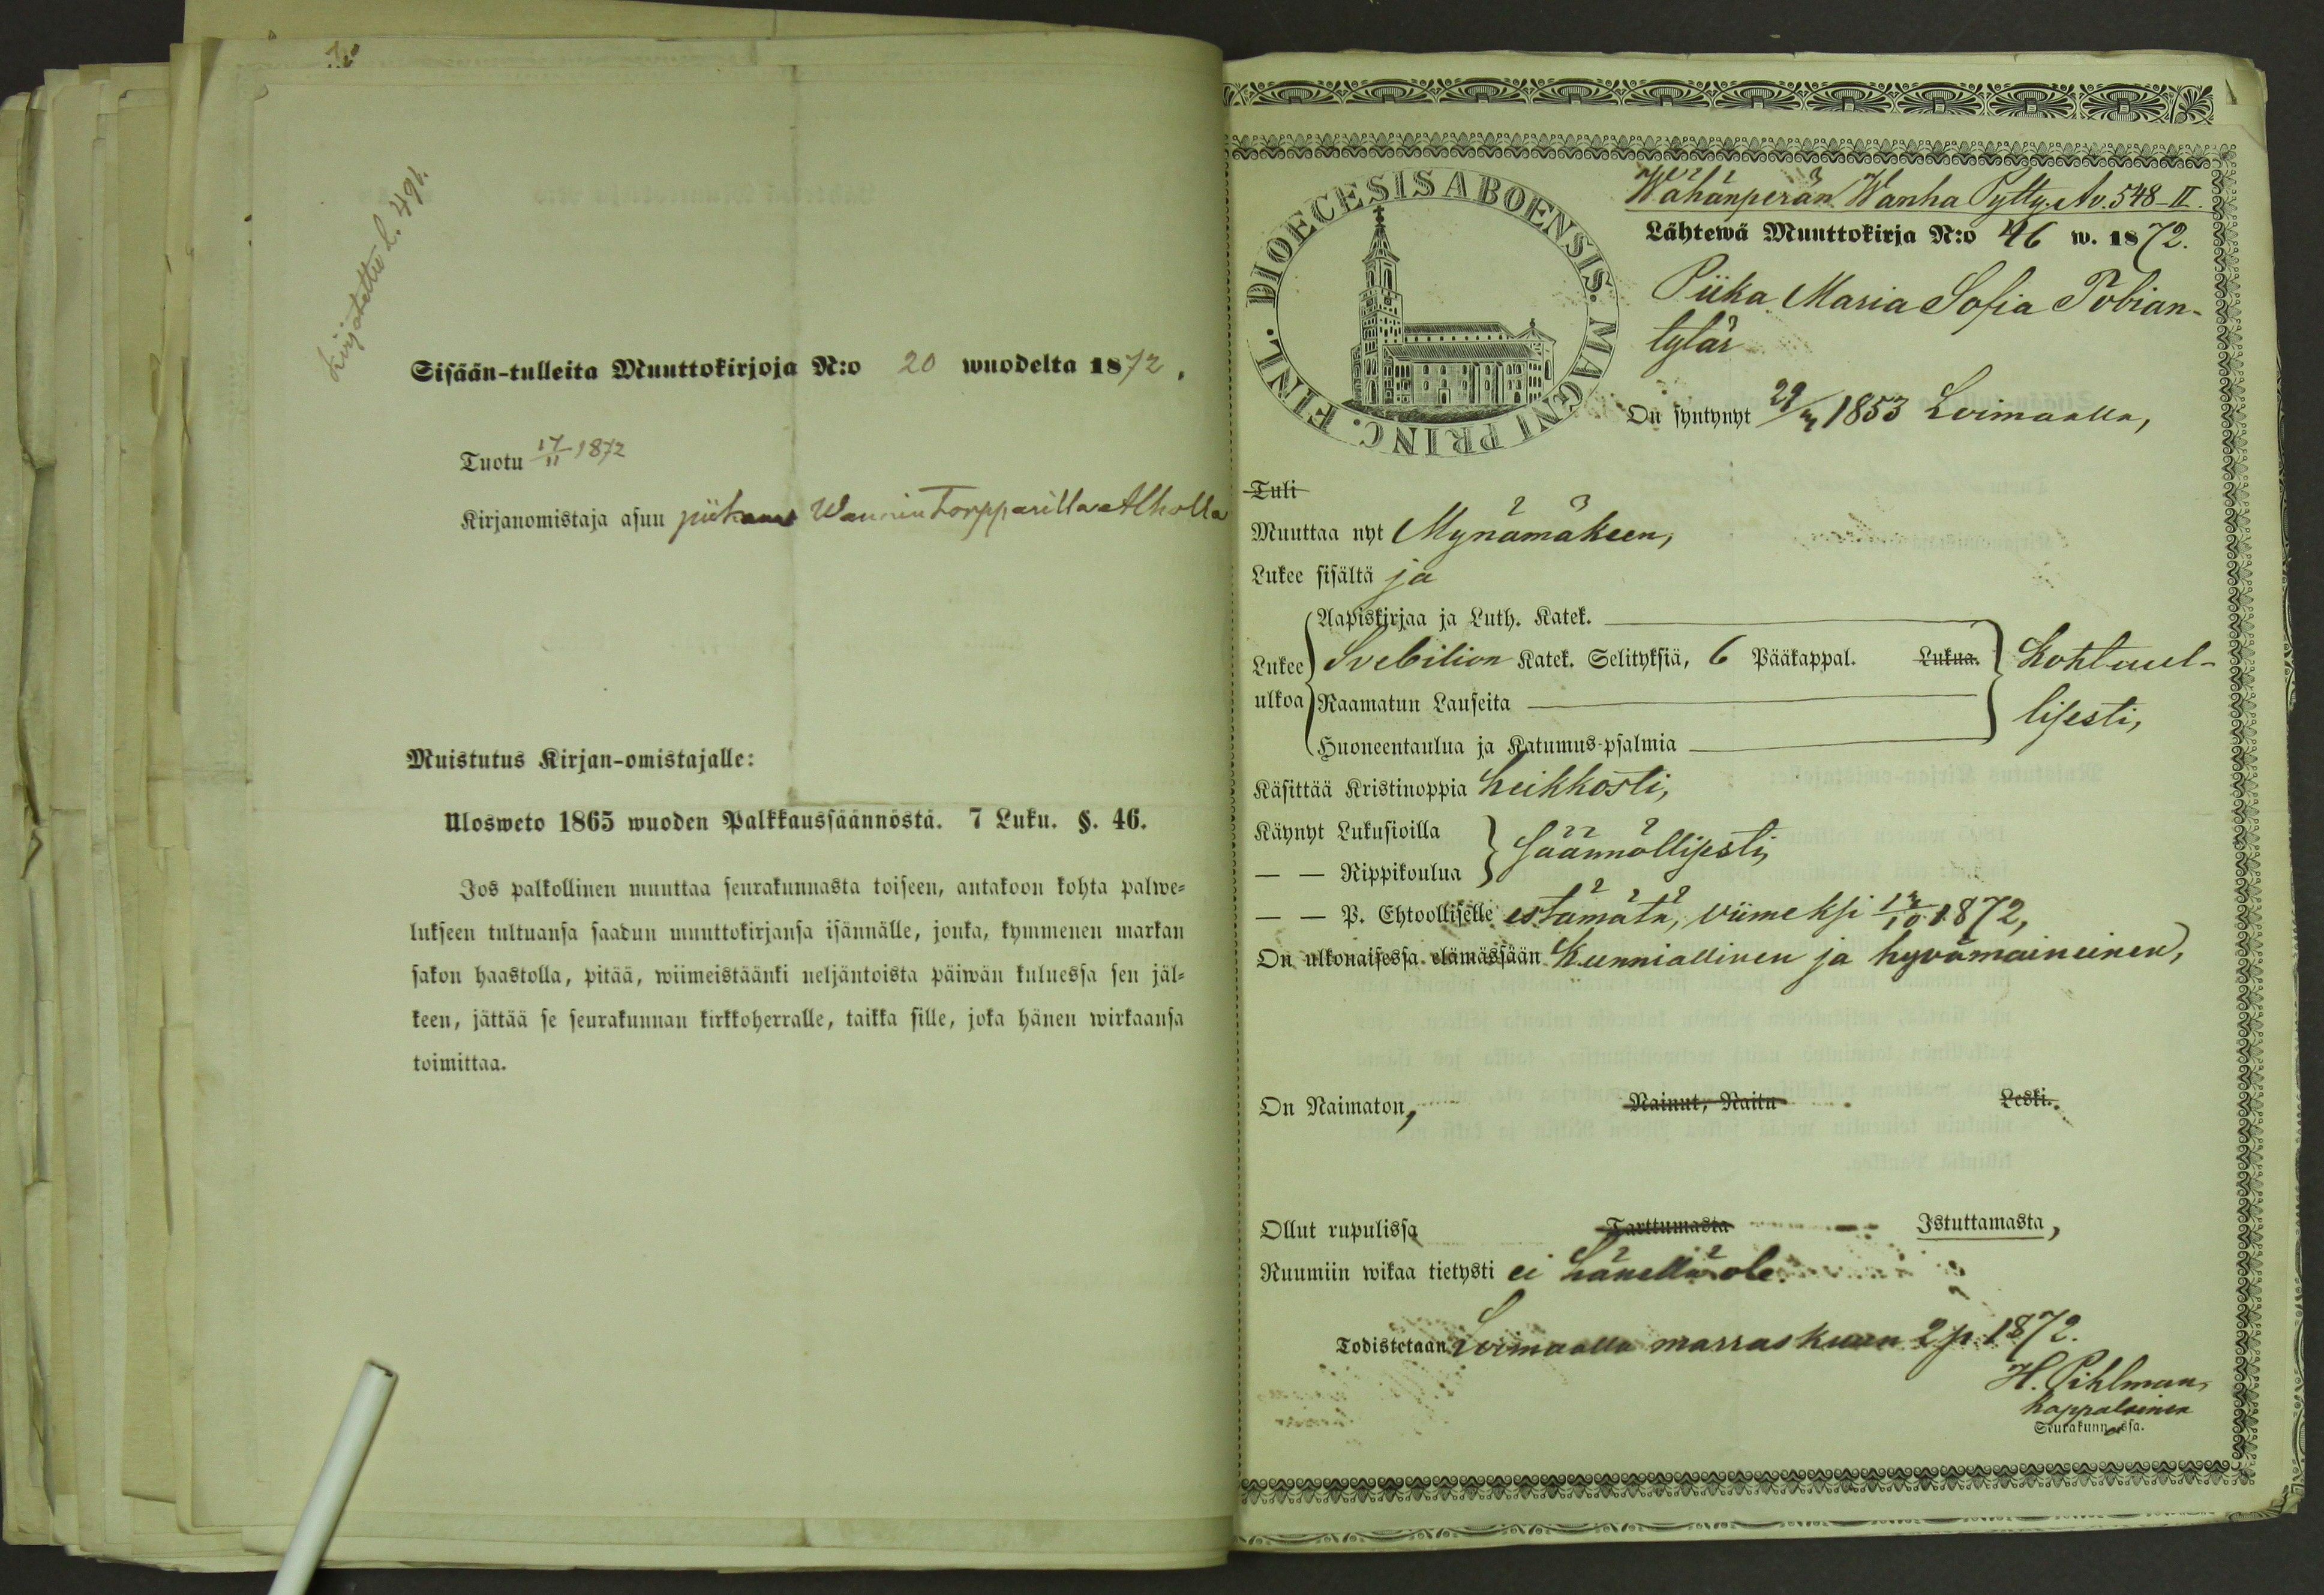 kirjoitettu l. 491.
Sisään-tulleita Muuttokirjoja N:o 20 wuodelta 1872.
Tuotu 17/11 1872
Kirjanomistaja asuu piikana Wannin Torpparilla Alholla
Muistutus Kirjan-omistajalle:
Ulosweto 1865 wuoden Palkkaussäännöstä. 7 Luku. §. 46.
Jos palkollinen muuttaa seurakunnasta toiseen, antakoon kohta palwe-
lukseen tultuansa saadun muuttokirjansa isännälle, jonka, kymmenen markan
sakon haastolla, pitää, wiimeistäänki neljäntoista päiwän kuluessa sen jäl-
keen, jättää se seurakunnan kirkkoherralle, taikka sille, joka hänen wirkaansa
toimittaa.
FINL. DIOECESIS ABOENSIS. MAGNI PRINC.
Wähänperän Wanha Pytty. Av. 548-II.
Lähtewä Muuttokirja N:o 46 w. 1872.
Piika Maria Sofia Tobian-
tytär
On syntynyt 29/3 1853 Loimaalla,
Tuli
Muuttaa nyt Mynämäkeen,
Lukee sisältä ja
Aapiskirjaa ja Luth. Katek.
Lukee ulkoa Svebilion Katek. Selityksiä, 6 Pääkappal. Lukua. kohtuul-
Raamatun Lauseita lisesti,
Huoneentaulua ja Katumus-psalmia
Käsittää Kristinoppia heikkosti,
Käynyt Lukusioilla
— — Rippikoulua säännöllisesti,
— — P. Ehtoolliselle estämätä, viimeksi 13/10 1872,
On ulkonaisessa elämässään kunniallinen ja hyvämaineinen,
On Naimaton, Nainut, Naitu Leski.
Ollut rupulissa Tarttumasta Istuttamasta,
Ruumiin wikaa tietysti ei hänellä ole.
Todistetaan Loimaalla marraskuun 2 p. 1872.
H. Pihlman,
kappalainen
Seurakunnassa.